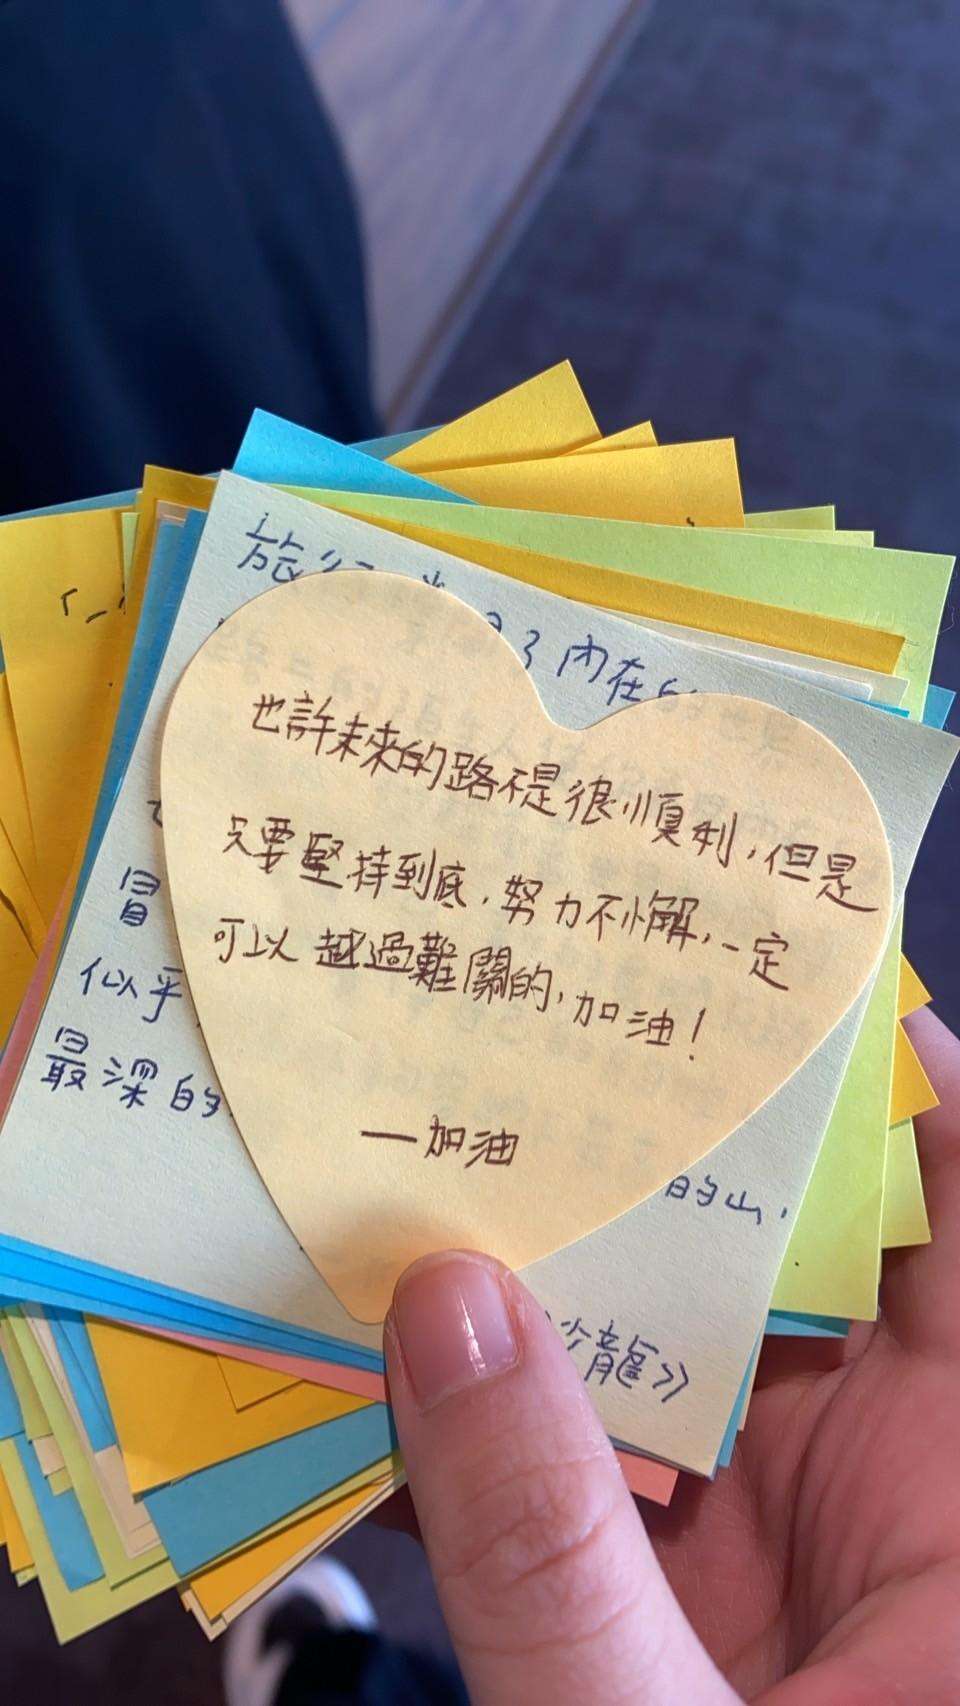 也許未來的路不是很順利，但是
只要堅持到底，努力不懈，一定
可以越過難關的，加油！
—加油
旅行
了內在的
冒
似乎
最深的
的山，
沙龍》